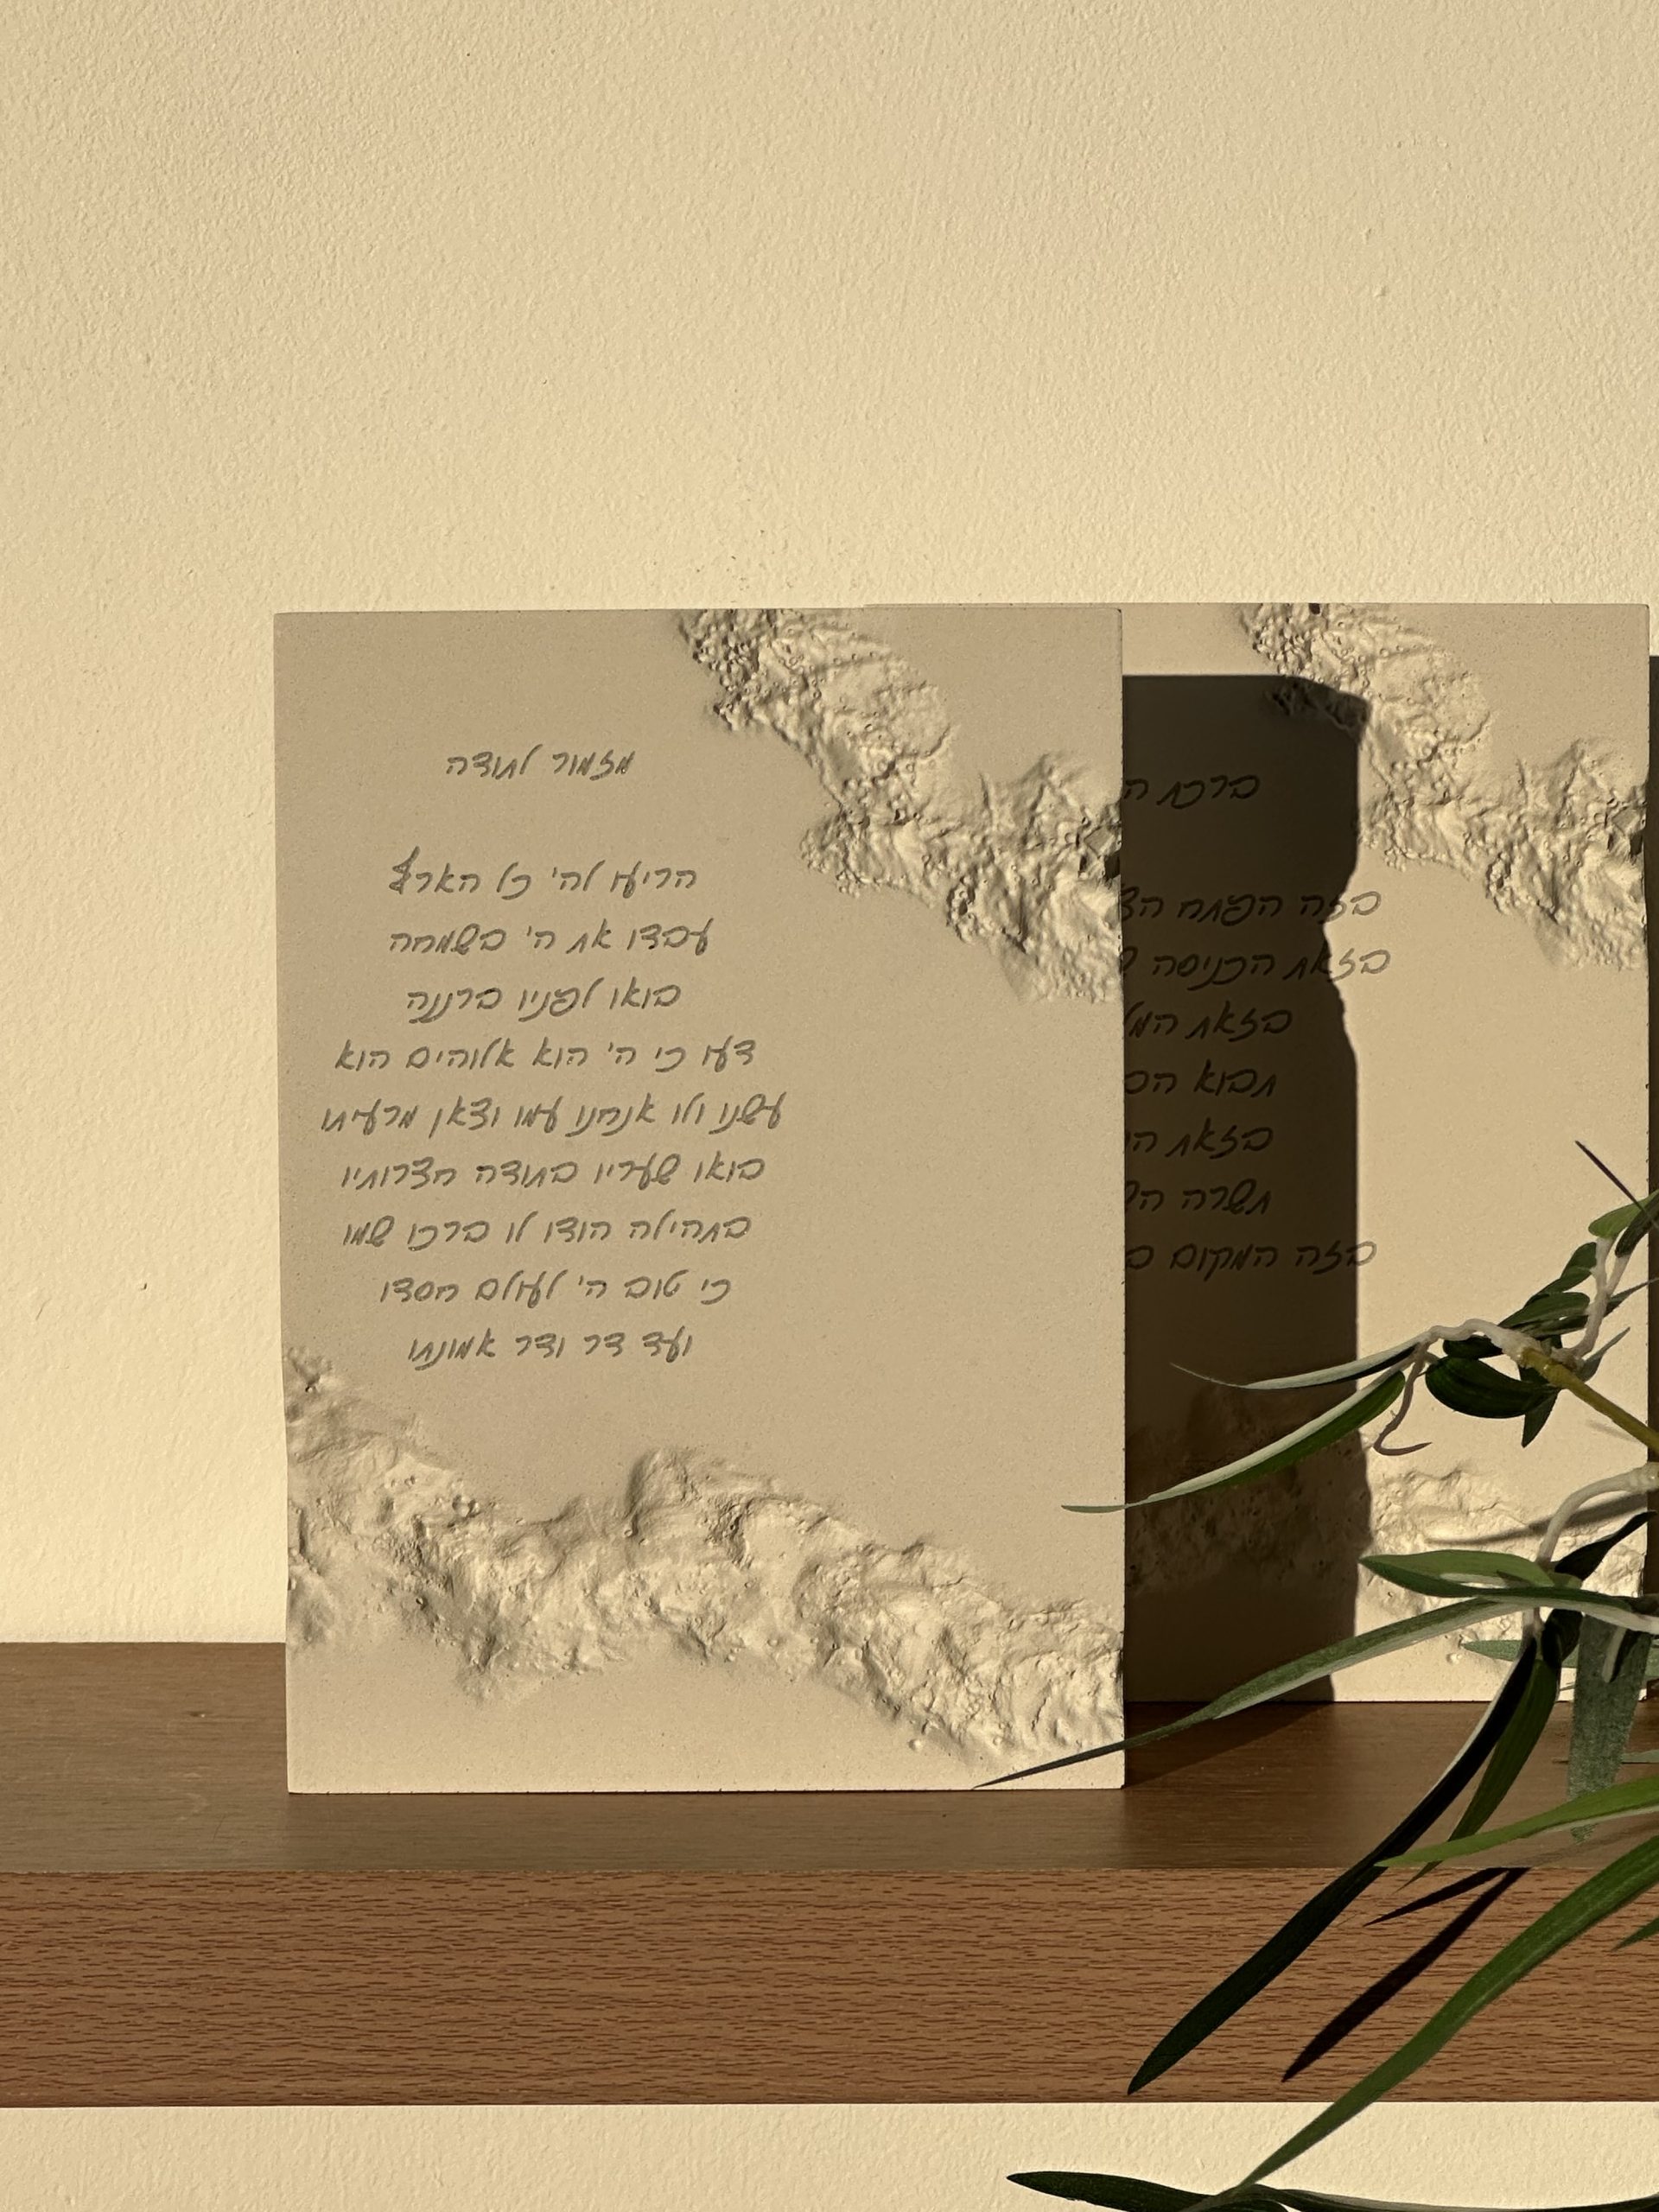 מזמור לתודה
הריעו לה' כל הארץ
עבדו את ה' בשמחה
בואו לפניו ברננה
דעו כי ה' הוא אלוהים הוא
עשנו ולו אנחנו עמו וצאן מרעיתו
בואו שעריו בתודה חצרותיו
בתהילה הודו לו ברכו שמו
כי טוב ה' לעולם חסדו
ועד דר ודר אמונתו
ברכת
בזה הפתח
בזאת הכניסה
בזאת
תבוא
בזאת
תשרה
בזה המקום